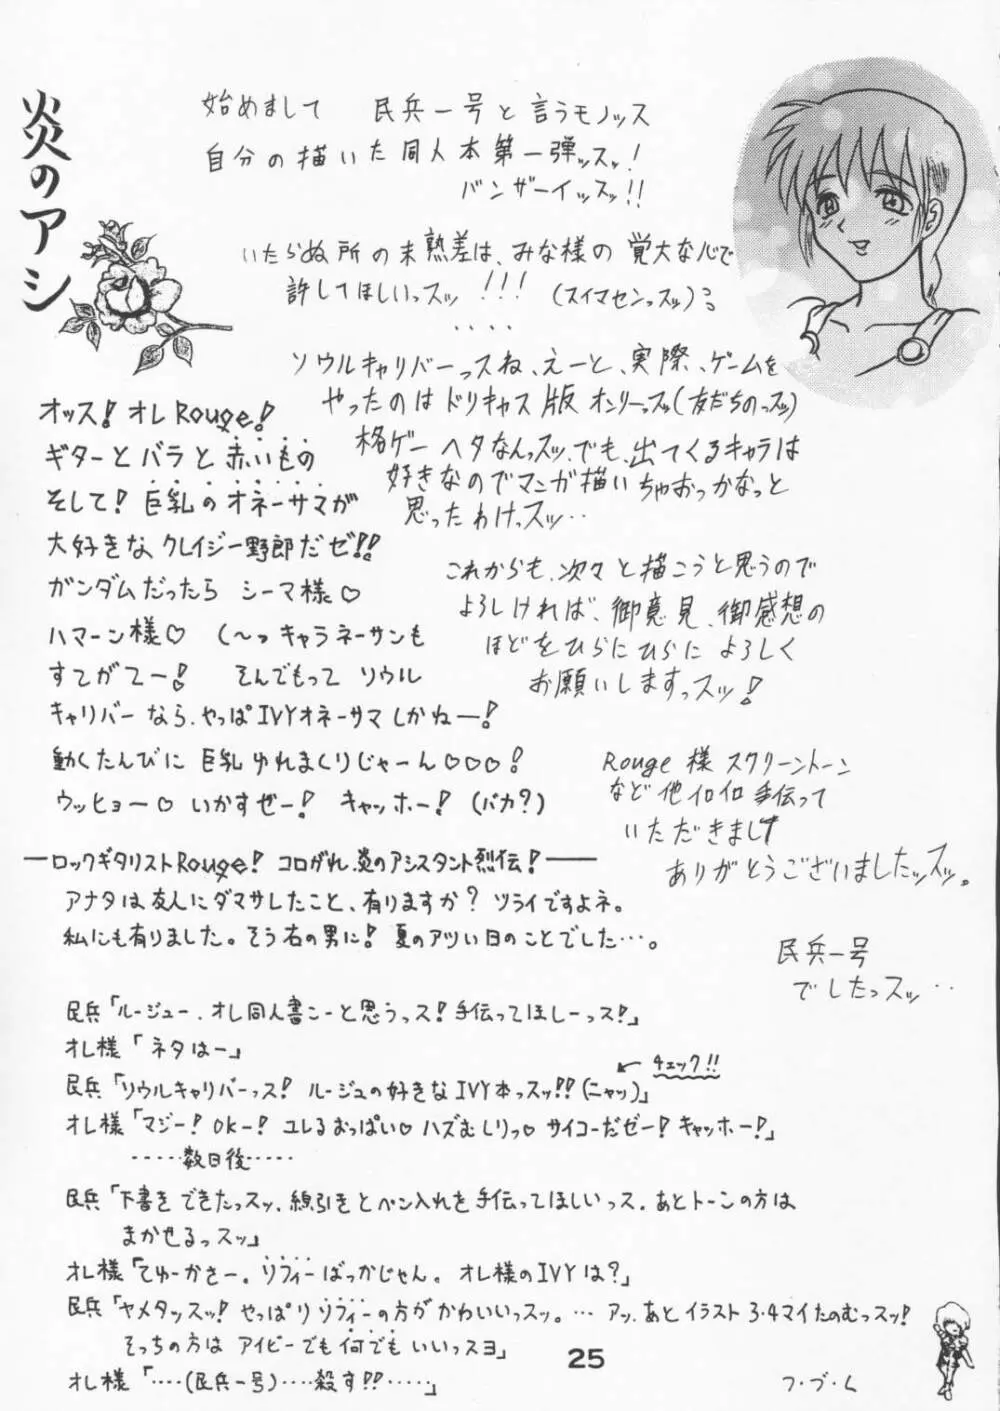 炎のアシ
始めまして 民兵一号と言うモノッス
自分の描いた同人本第一弾ッスッ!
バンザーイッスッ!!
いたらぬ所の未熟差は、みな様の覚大な心で
許してほしいっスッ!!! (スイマセンっスッ)
ソウルキャリバーっスね、えーと、実際、ゲームを
やったのはドリキャス版オンリーっスッ(友だちのっスッ)
格ゲーヘタなんっスッ、でも、出てくるキャラは
好きなのでマンガ描いちゃおっかなっと
思ったわけっスッ‥
これからも、次々と描こうと思うので
よろしければ、御意見、御感想の
ほどをひらにひらによろしく
お願いしますっスッ!
Rouge様スクリーントーン
など他イロイロ手伝って
いただきまして
ありがとうございましたッスッ。
民兵一号
でしたっスッ‥
オッス!オレRouge!
ギターとバラと赤いもの
そして!巨乳のオネーサマが
大好きなクレイジー野郎だゼ!!
ガンダムだったら シーマ様♡
ハマーン様♡ (〜っキャラネーサンも
すてがてー! そんでもって ソウル
キャリバーなら、やっぱIVYオネーサマしかねー!
動くたんびに 巨乳ゆれまくりじゃーん♡♡♡!
ウッヒョー♡ いかすぜー! キャッホー!(バカ?)
―ロックギタリストRouge! コロがれ、炎のアシスタント烈伝!―
アナタは友人にダマサしたこと、有りますか?ツライですよネ。
私にも有りました。そう右の男に!夏のアツい日のことでした…。
民兵「ルージュー、オレ同人書こーと思うっス!手伝ってほしーっス!」
オレ様「ネタはー」
チェック!!
民兵「ソウルキャリバーっス! ルージュの好きなIVY本っスッ!!(ニャッ)」
オレ様「マジー!OKー!ユレるおっぱい♡ハズむしりっ♡サイコーだゼー!キャッホー!」
‥‥‥数日後‥‥‥
民兵「下書きできたっスッ、線引きとペン入れを手伝ってほしいっス。あとトーンの方は
まかせるっスッ」
オレ様「てゆーかさー。ソフィーばっかじゃん。オレ様のIVYは?」
民兵「ヤメタッスッ!やっぱりソフィーの方がかわいいっスッ。…アッ、あとイラスト3・4マイたのむっスッ!
そっちの方はアイビーでも何でもいいっスヨ」
オレ様「‥‥(民兵一号)‥‥殺す!!‥‥‥」
25
フ・ブ・ム